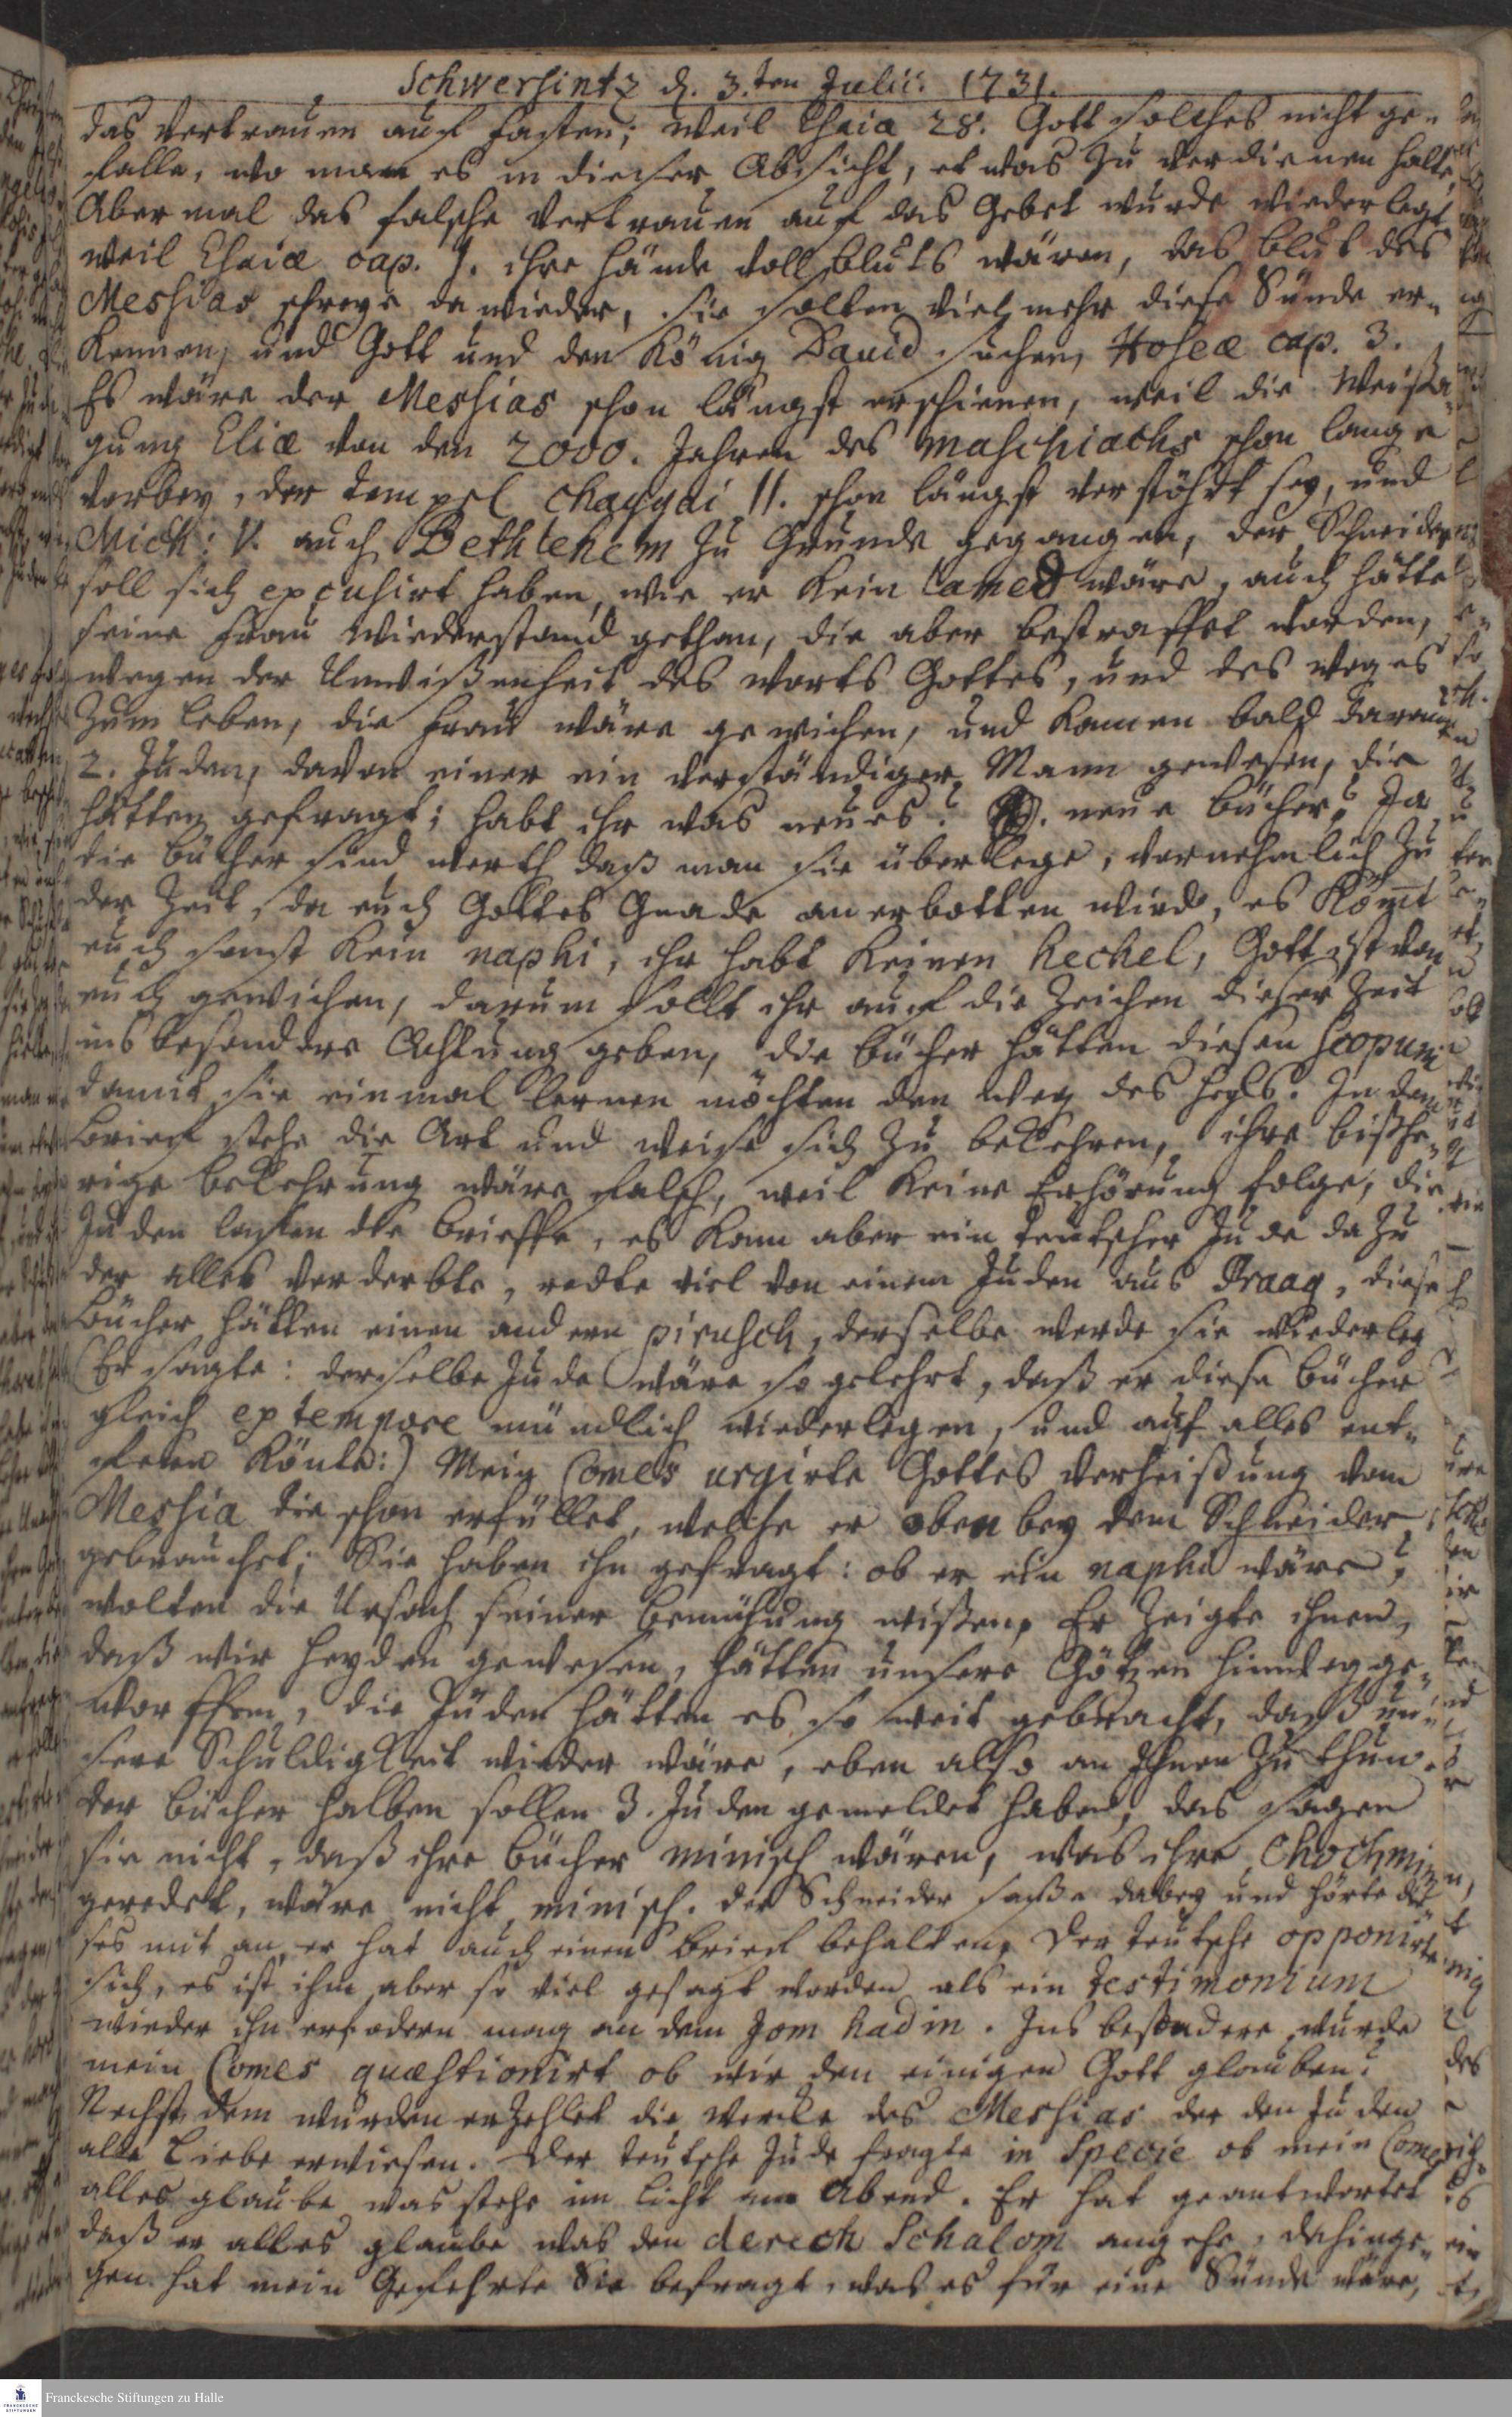 Schwersintz d. 3.ten Julii: 1731.
das vertrauen auf fasten; weil Esaiæ 28. Gott solches nicht ge-
falle, wo man es in dieser Absicht, etwas zu verdienen halte,
Aber mal das falsche vertrauen auf das Gebet wurde wiederlegt
weil Esaiæ cap. 1. ihre hände voll bluts wären, das blut des
Messias schreye dawieder, sie solten vielmehr diese Sünde er-
kennen, und Gott und den König David suchen, Hoseæ cap. 3.
Es wäre der Messias schon längst erschienen, weil die Weißa-
gung Eliæ von den 2000. Jahren des Maschiachs schon lange
vorbey, der tempel Chaggai II. schon längst verstöhrt sey, und
Mich: V. auch Bethlehem zu Grunde gegangen, der Schneider
soll sich excusirt haben, wie er kein lamed wäre, auch hätte
seine Frau wiederstand gethan, die aber bestraffet worden,
wegen der Unwißenheit des worts Gottes, und des weges
zum leben, die Frau wäre gewichen, und kamen bald darauf
2. Juden, davon einer ein verständiger Mann gewesen, die
hätten gefragt; habt ihr was neues? neue bücher? Ja,
die bücher sind werth daß man sie überlege, vornehmlich zu
der Zeit, da euch Gottes Gnade anerbotten wird, es kömt
euch sonst kein naphi, ihr habt keinen hechel, Gott ist von
euch gewichen, darum sollt ihr auf die Zeichen dieser Zeit
ins besondere Achtung geben, die bücher hätten diesen scopum
damit sie einmal lernen möchten den weg des heyls. In dem
brieff stehe die Art und weise sich zu bekehren, ihre bißhe-
rige bekehrung wäre falsch, weil keine Erhörung folge, die
Juden lasen die brieffe, es kam aber ein teutscher Jude dazu
der alles verderbte, redte viel von einem Juden aus Praag, diese
bücher hätten einen andern pirusch, derselbe werde sie wiederleg
(Er sagte: derselbe Jude wäre so gelehrt, daß er diese bücher
gleich ex tempore mündlich wiederlegen, und auf alles ant-
worten könte:) Mein Comes urgirte Gottes Verheißung vom
Messia die schon erfüllet, welche er oben bey dem Schneider
gebrauchet; Sie haben ihn gefragt: ob er ein naphi wäre?
wolten die Ursach seiner bemühung wißen, Er zeigte ihnen,
daß wir heyden gewesen, hätten unsere Götzen hinweg ge-
worffen, die Juden hätten es so weit gebracht, daß un-
sere Schuldigkeit wieder wäre, eben also an Ihnen zu thun.
der bücher halben sollen 3. Juden gemeldet haben, das sagen
sie nicht, daß ihre bücher minisch wären, was ihre Chochmim
geredet, wäre nicht minisch. der Schneider saße dabey und hörte die-
ses mit an, er hat auch einen brieff behalten, der teutsche opponirte
sich, es ist ihm aber so viel gesagt worden als ein testimonium
wieder ihn erfodern mag an dem Jom hadin. Ins besondere wurde
mein Comes quæstionirt ob wir den einigen Gott glauben?
Nechst dem wurden erzehlet die wercke des Messias der den Juden
alle Liebe erwiesen. Der teutsche Jude fragte in Specie ob mein Comes
alles glaube was stehe im licht am Abend. Er hat geantwortet
daß er alles glaube was den derech Schalom angehe, dahinge-
gen hat mein Gefehrte Sie befragt, was es für eine Sünde wäre,
Franckesche Stiftungen zu Halle